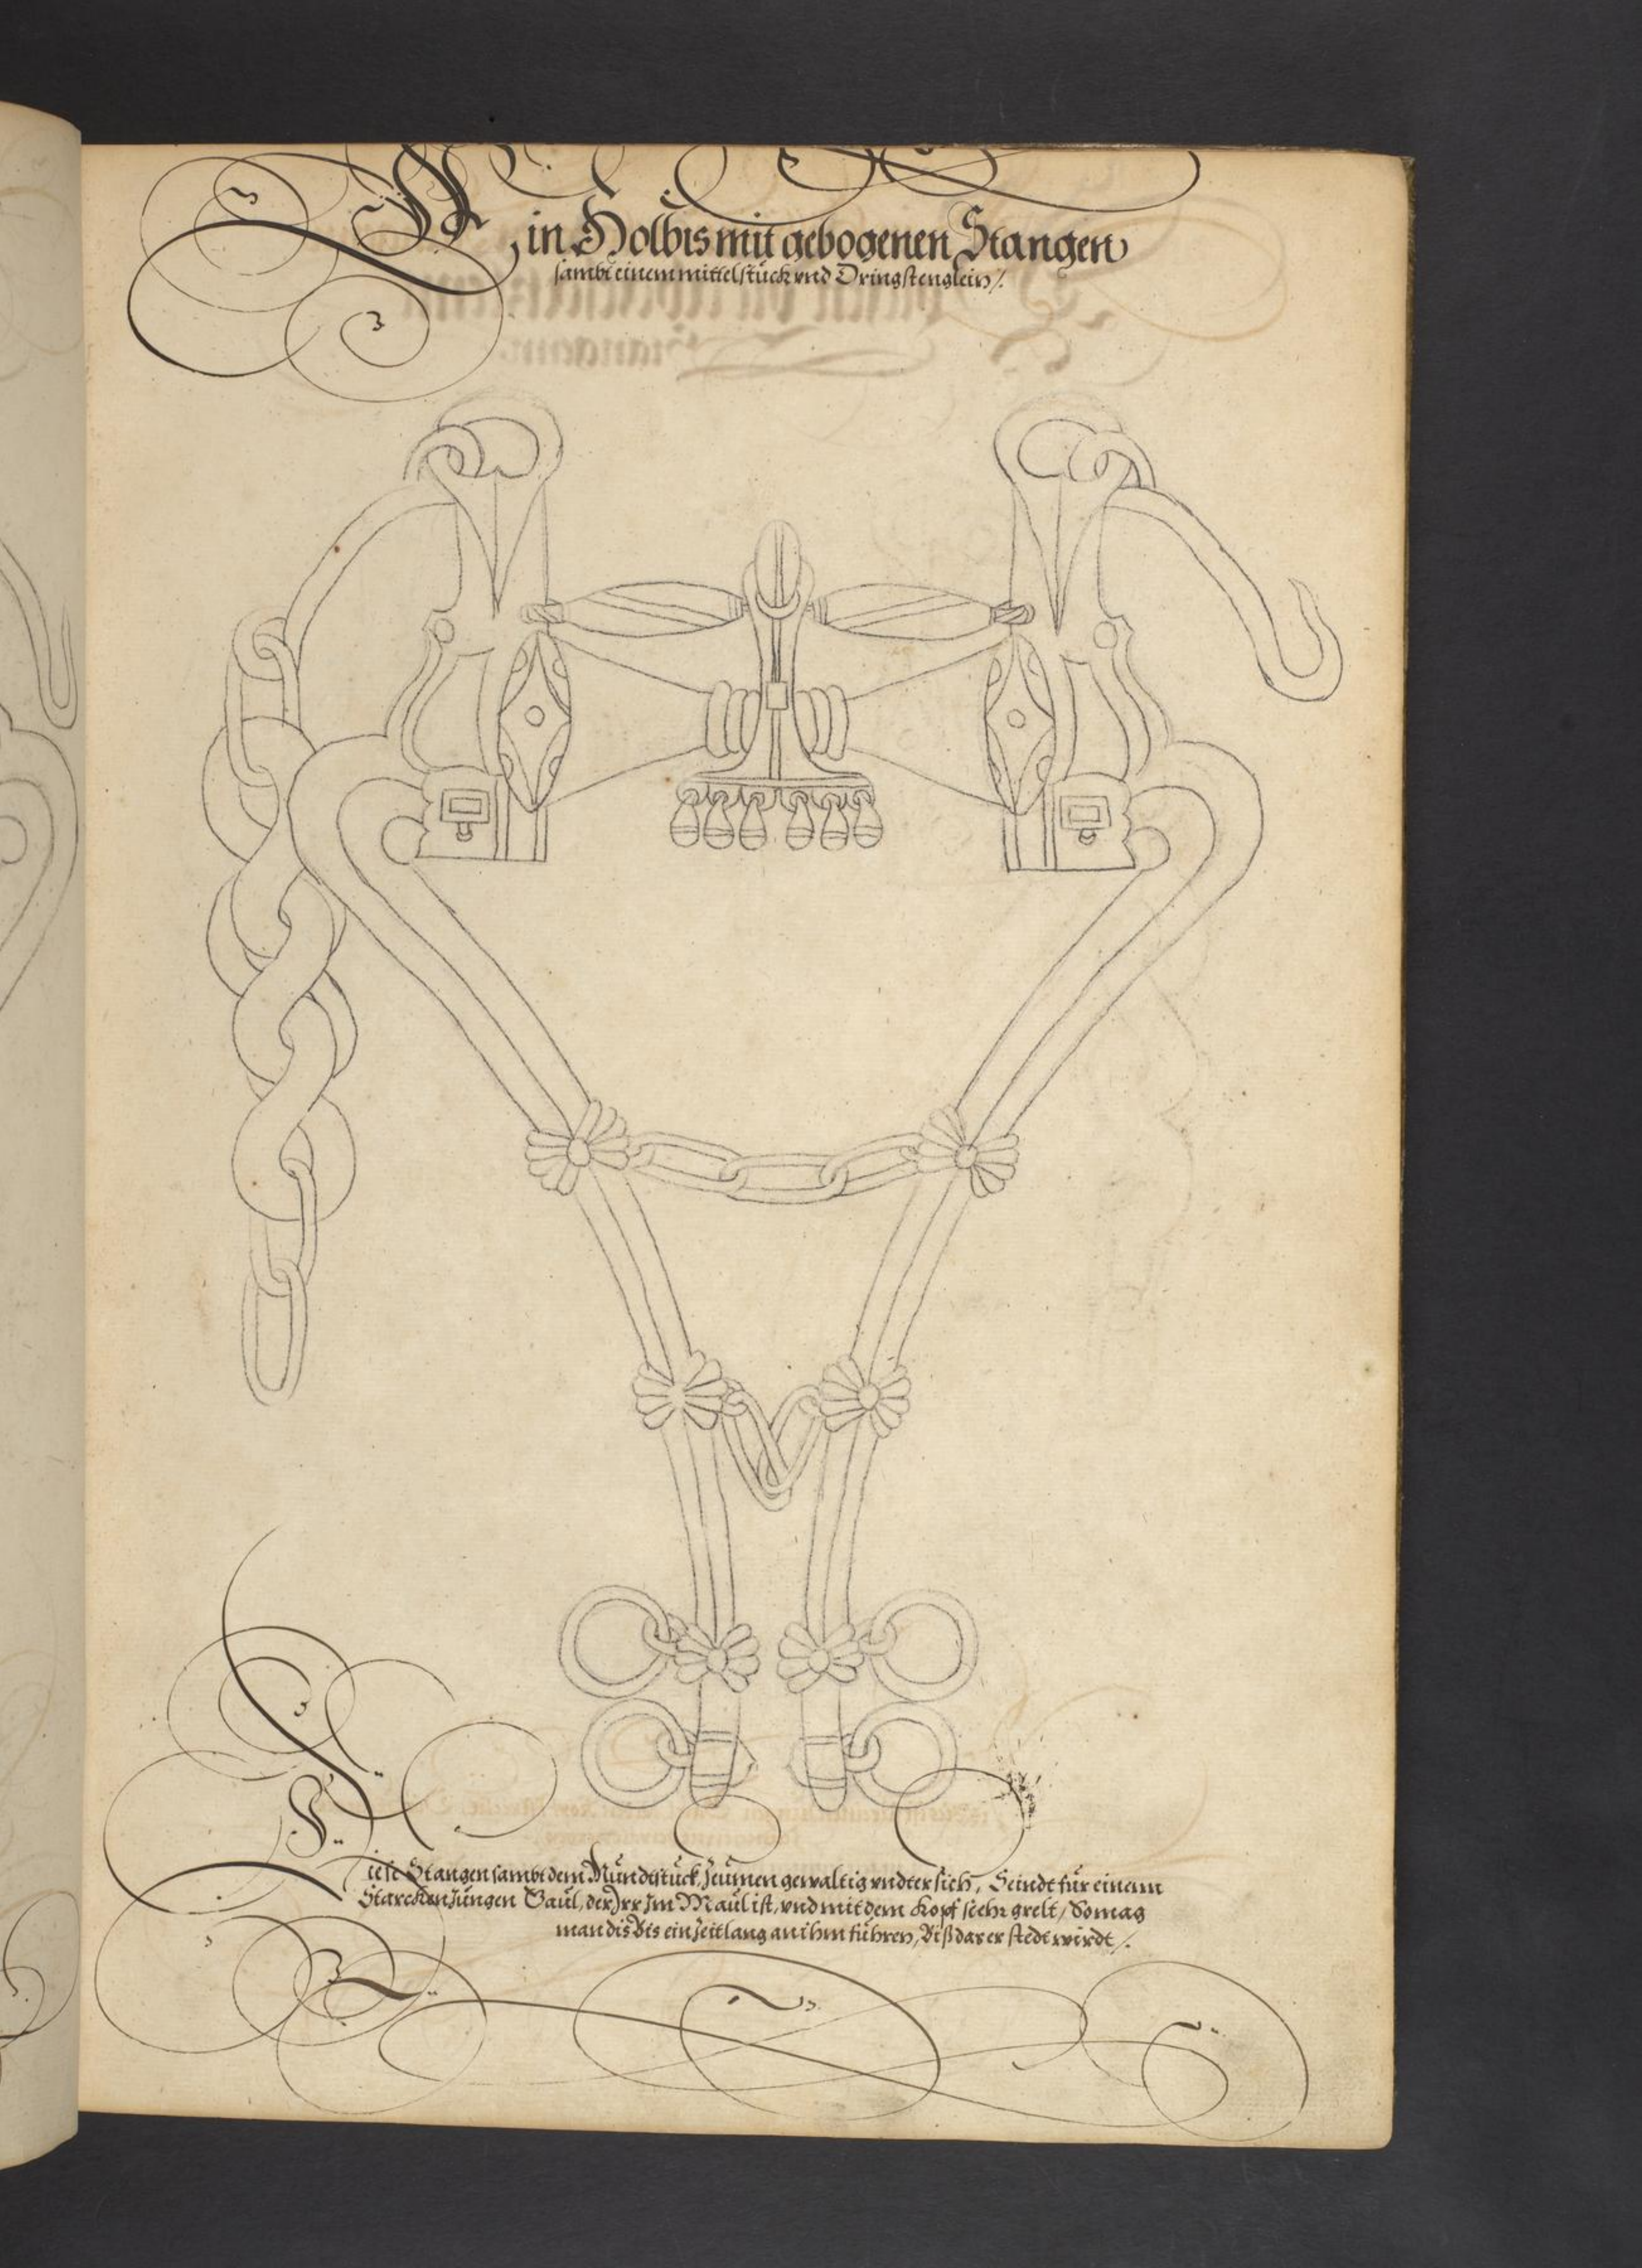 Ein Holbis mit gebogenen Stangen
sambt einem mittelstück vnd Dringstenglein /.
Diese Stangen sambt dem Mündtstück, Zeümen gewaltig vndter sich, Seindt für einenn
Starcken Jüngen Gaül, der Irr Im Maül ist, vnd mit dem Kopf siehr grelt / So mag
man dis Bis ein Zeitlang an ihm führen, Biß das er stedt wirdt /.